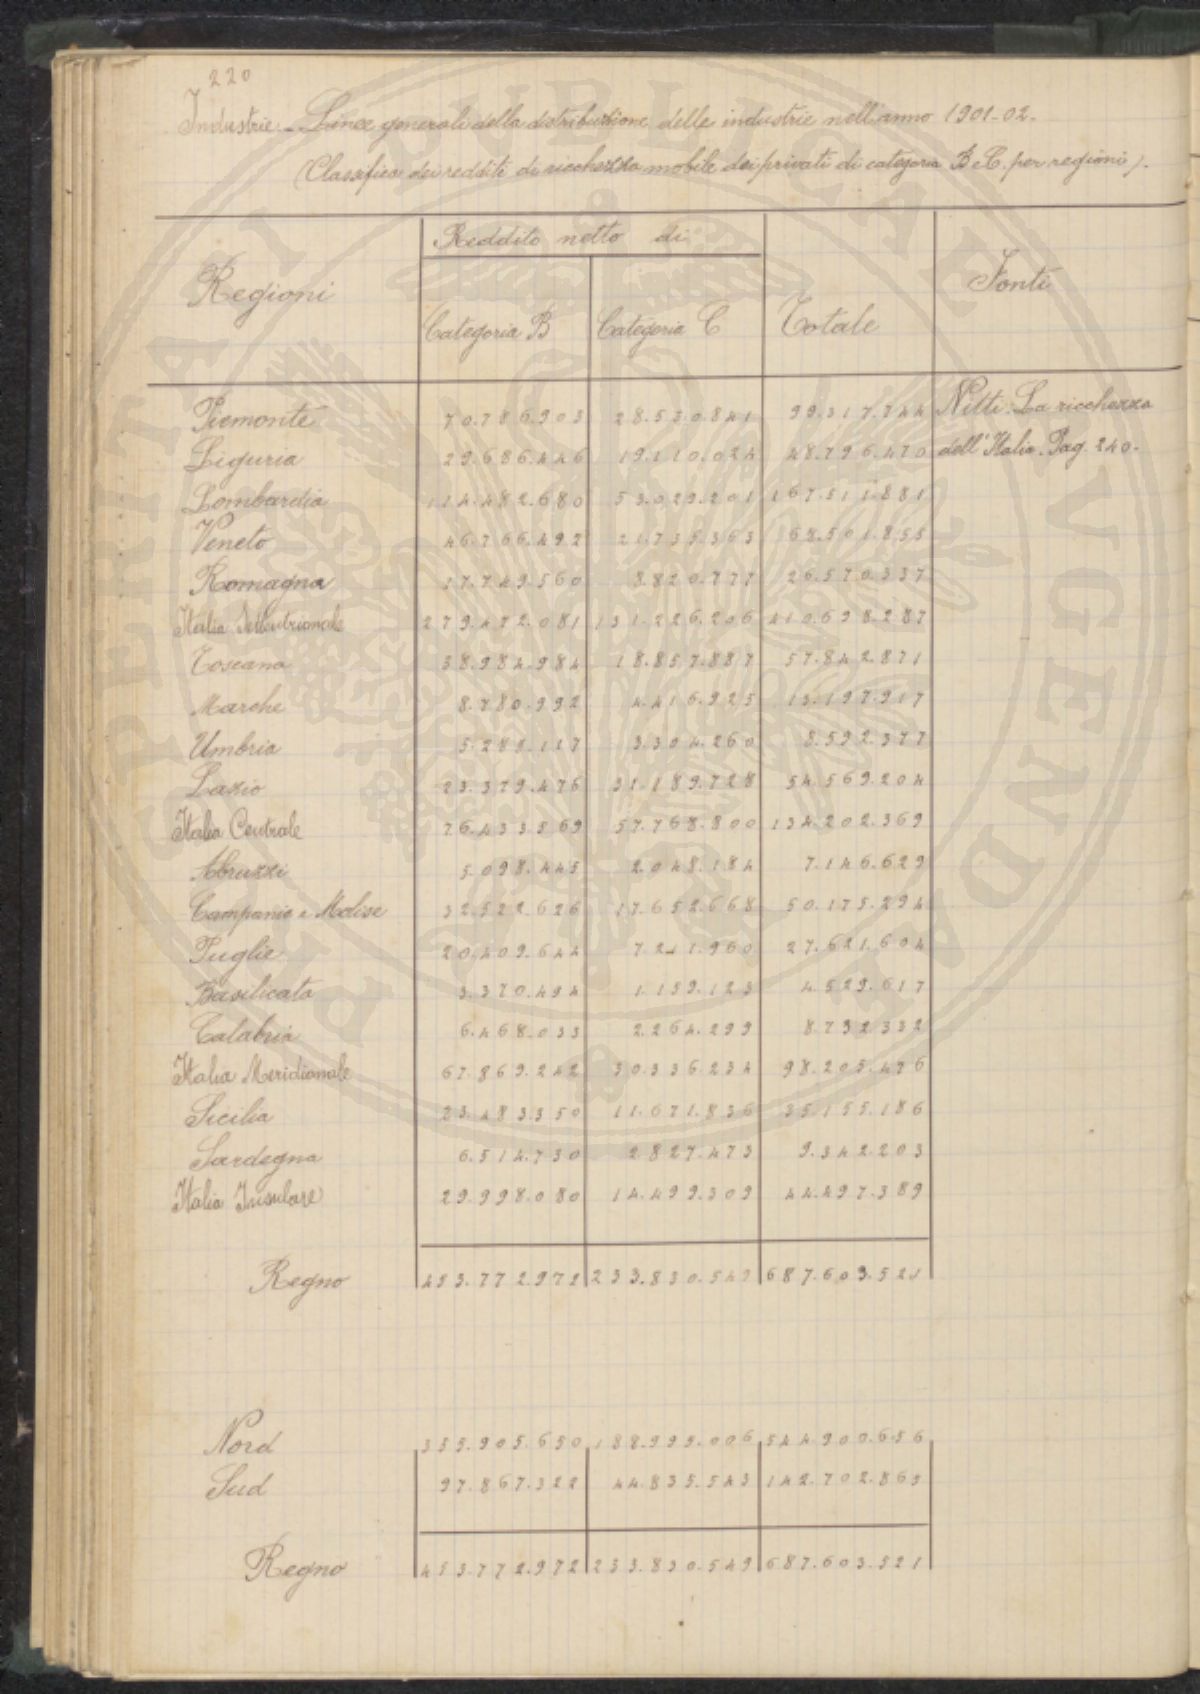 220
Industrie - Linee generali della distribuzione delle industrie nell'anno 1901-02.
(Classifica dei redditi di ricchezza mobile dei privati di categoria B e C. per regioni).
Regioni Reddito netto di Totale Fonti
Categoria B Categoria C
Piemonte 70.786.903 28.530.841 99.317.744 Nitti. La ricchezza
Liguria 29.686.446 19.110.024 48.796.470 dell'Italia. Pag. 240.
Lombardia 114.482.680 53.029.201 167.511.881
Veneto 46.766.492 21.735.363 68.501.855
Romagna 17.749.560 8.820.777 26.570.337
Italia Settentrionale 279.472.081 131.226.206 410.698.287
Toscana 38.984.984 18.857.887 57.842.871
Marche 8.780.992 4.416.925 13.197.917
Umbria 5.288.117 3.304.260 8.592.377
Lazio 23.379.476 31.189.728 54.569.204
Italia Centrale 76.433.569 57.768.800 134.202.369
Abruzzi 5.098.445 2.048.184 7.146.629
Campania e Molise 32.522.626 17.652.668 50.175.294
Puglie 20.409.644 7.211.960 27.621.604
Basilicata 3.370.494 1.159.123 4.529.617
Calabria 6.468.033 2.264.299 8.732.332
Italia Meridionale 67.869.242 30.336.234 98.205.476
Sicilia 23.483.350 11.671.836 35.155.186
Sardegna 6.514.730 2.827.473 9.342.203
Italia Insulare 29.998.080 14.499.309 44.497.389
Regno 453.772.972 233.830.549 687.603.521
Nord 355.905.650 188.995.006 544.900.656
Sud 97.867.322 44.835.543 142.702.865
Regno 453.772.972 233.830.549 687.603.521